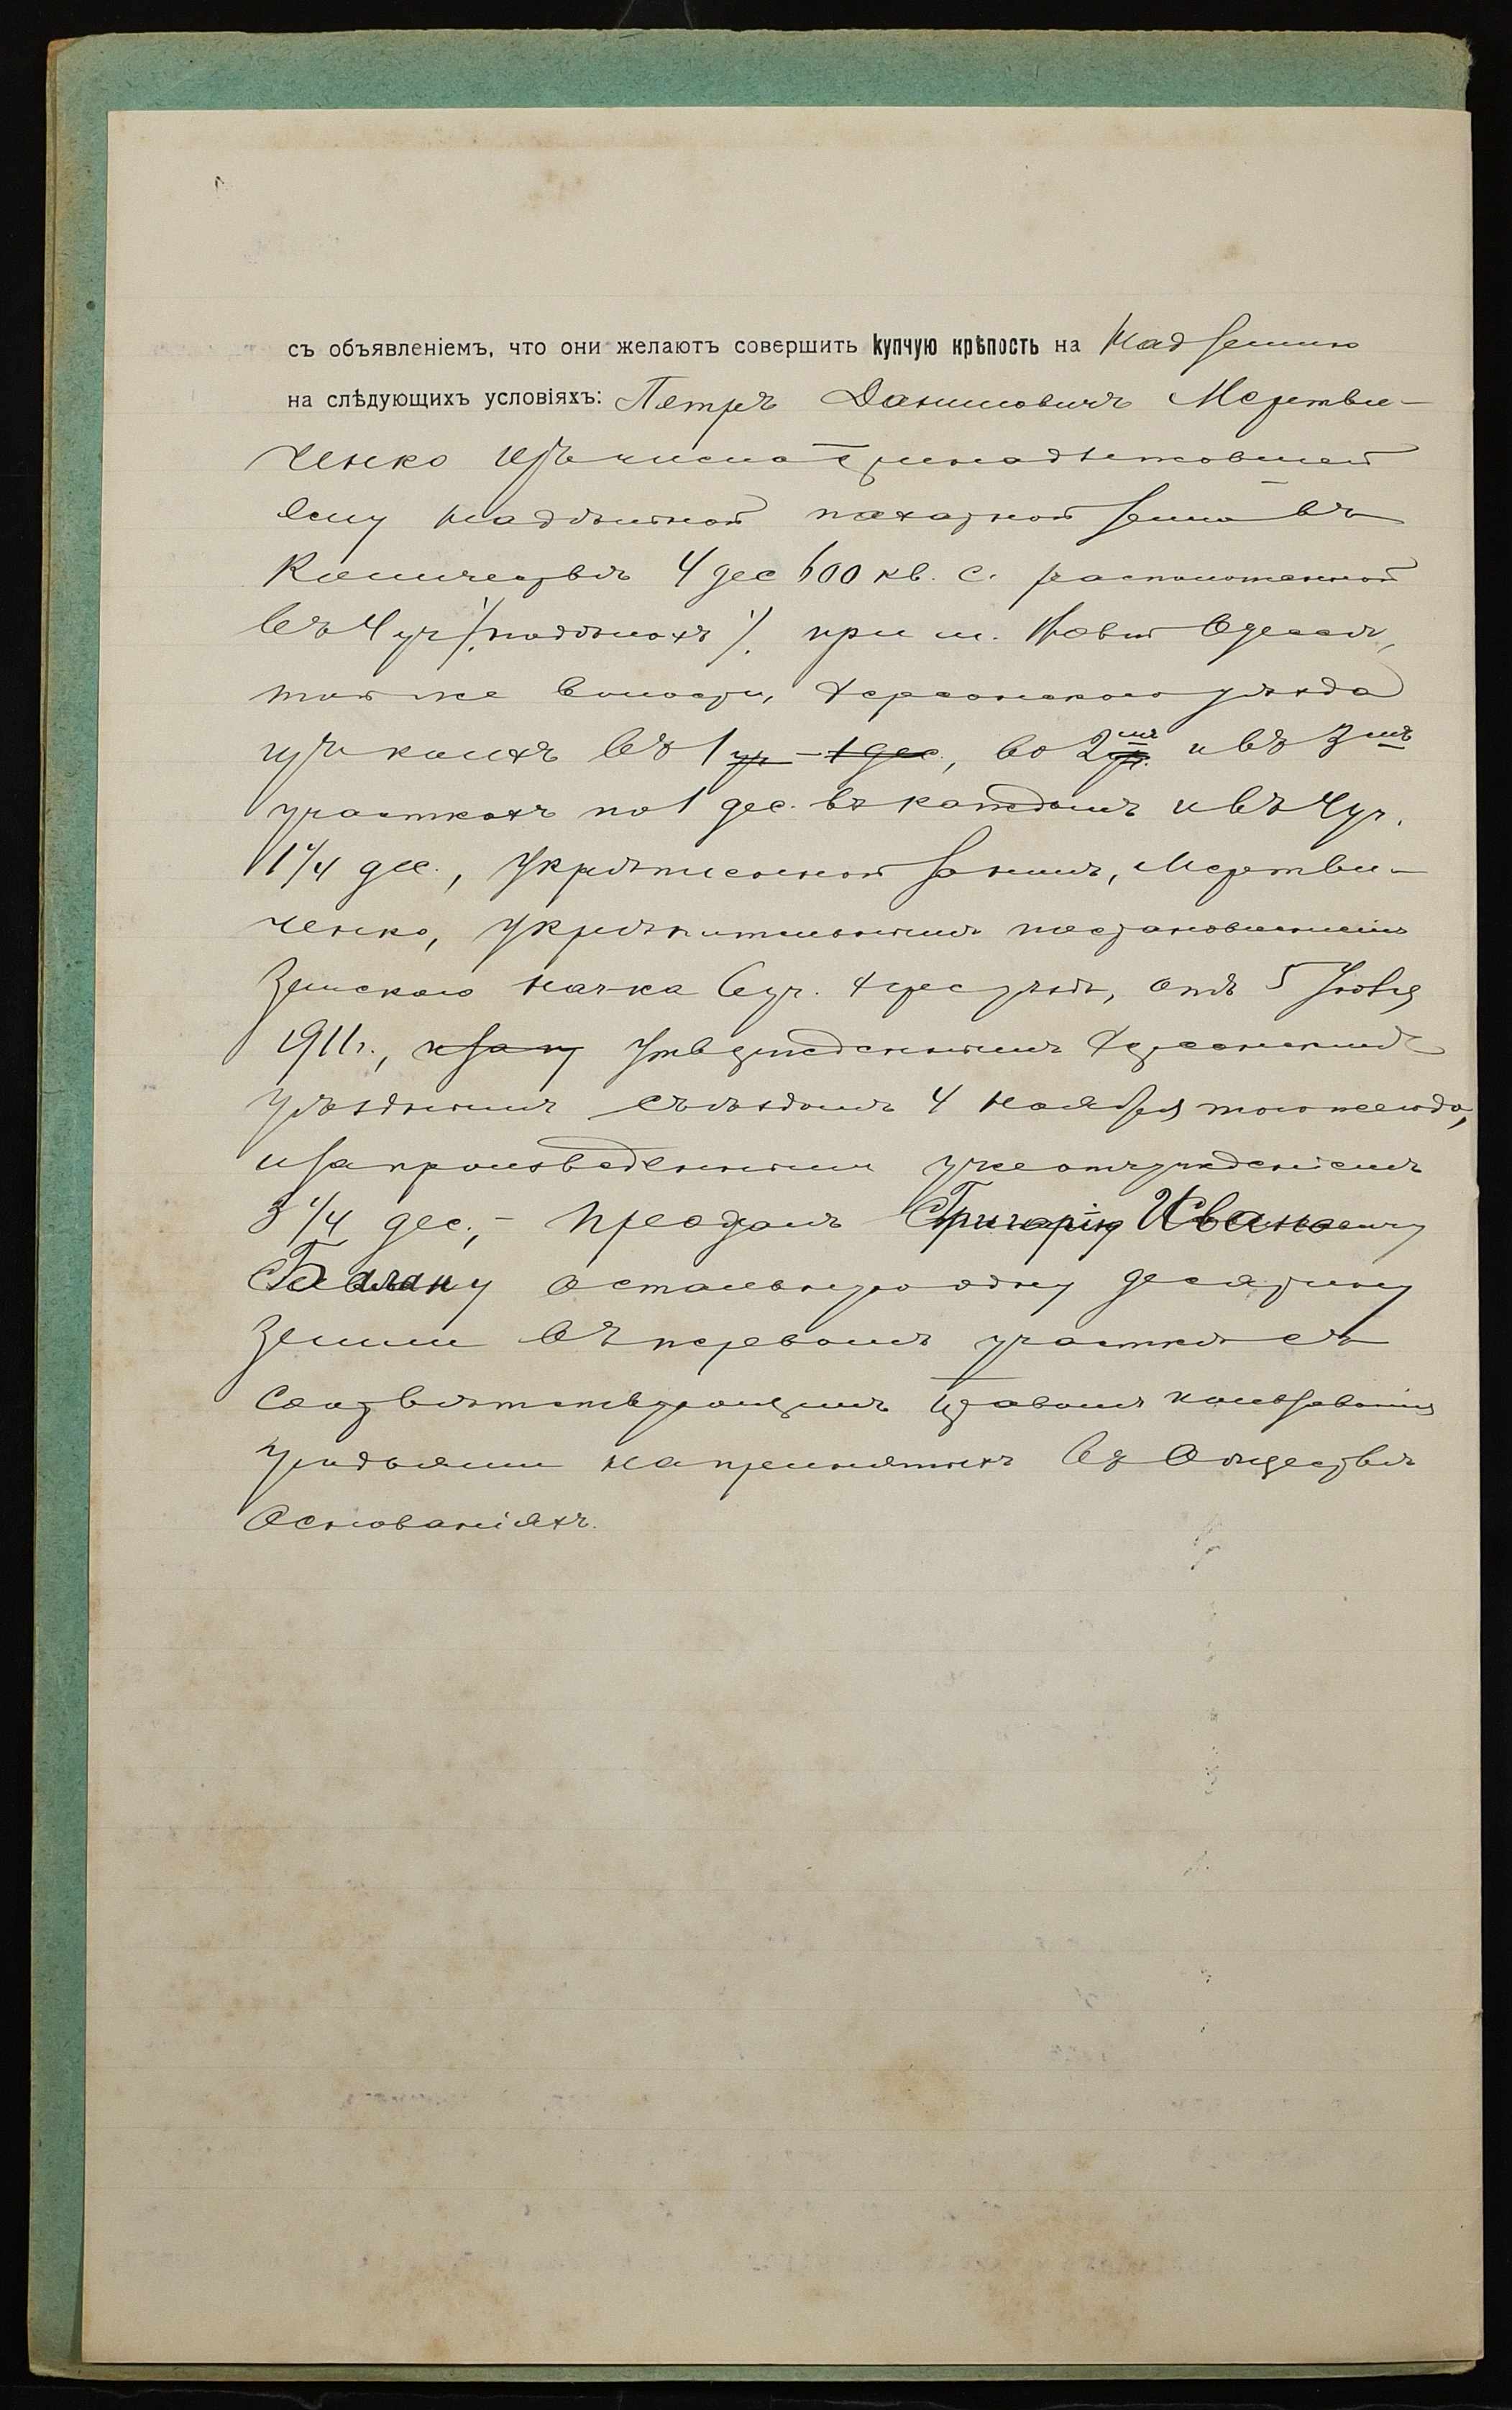 съ объявленіемъ, что они желаютъ совершить купчую крѣпость на над землю
на слѣдующихъ условіяхъ: Петръ Даниловичъ Мертви-
ченко изъ числа принадлежавшей
ему надѣльной пахатной земли въ
количествѣ 4 дес 600 кв. с. расположенной
въ 4 уч /. наддѣлахъ /. при м. Новой Одессѣ,
той же волости, Херсонскаго уѣзда
изъ коихъ въ 1 уч – 1 дес., во 2мъ и въ 3мъ
участкахъ по 1 дес. въ каждомъ и въ 4 уч.
1 1/4 дес., укрѣпленной за нимъ, Мертви-
ченко, укрѣпительнымъ постановленіемъ
Земскаго нач-ка 6 уч. Херс уѣзда, отъ 5 Іюля
1911 г., и за № утвержденнымъ Херсонскимъ
уѣзднымъ съѣздомъ 4 ноября того же года,
и за произведеннымъ уже отчужденіемъ
3 1/4 дес., – продалъ Григорію Ивановичу
Балану остальную одну десятину
земли въ первомъ участкѣ съ
соотвѣтствующимъ правомъ пользованія
угодьями на принятыхъ въ обществѣ
основаніяхъ.